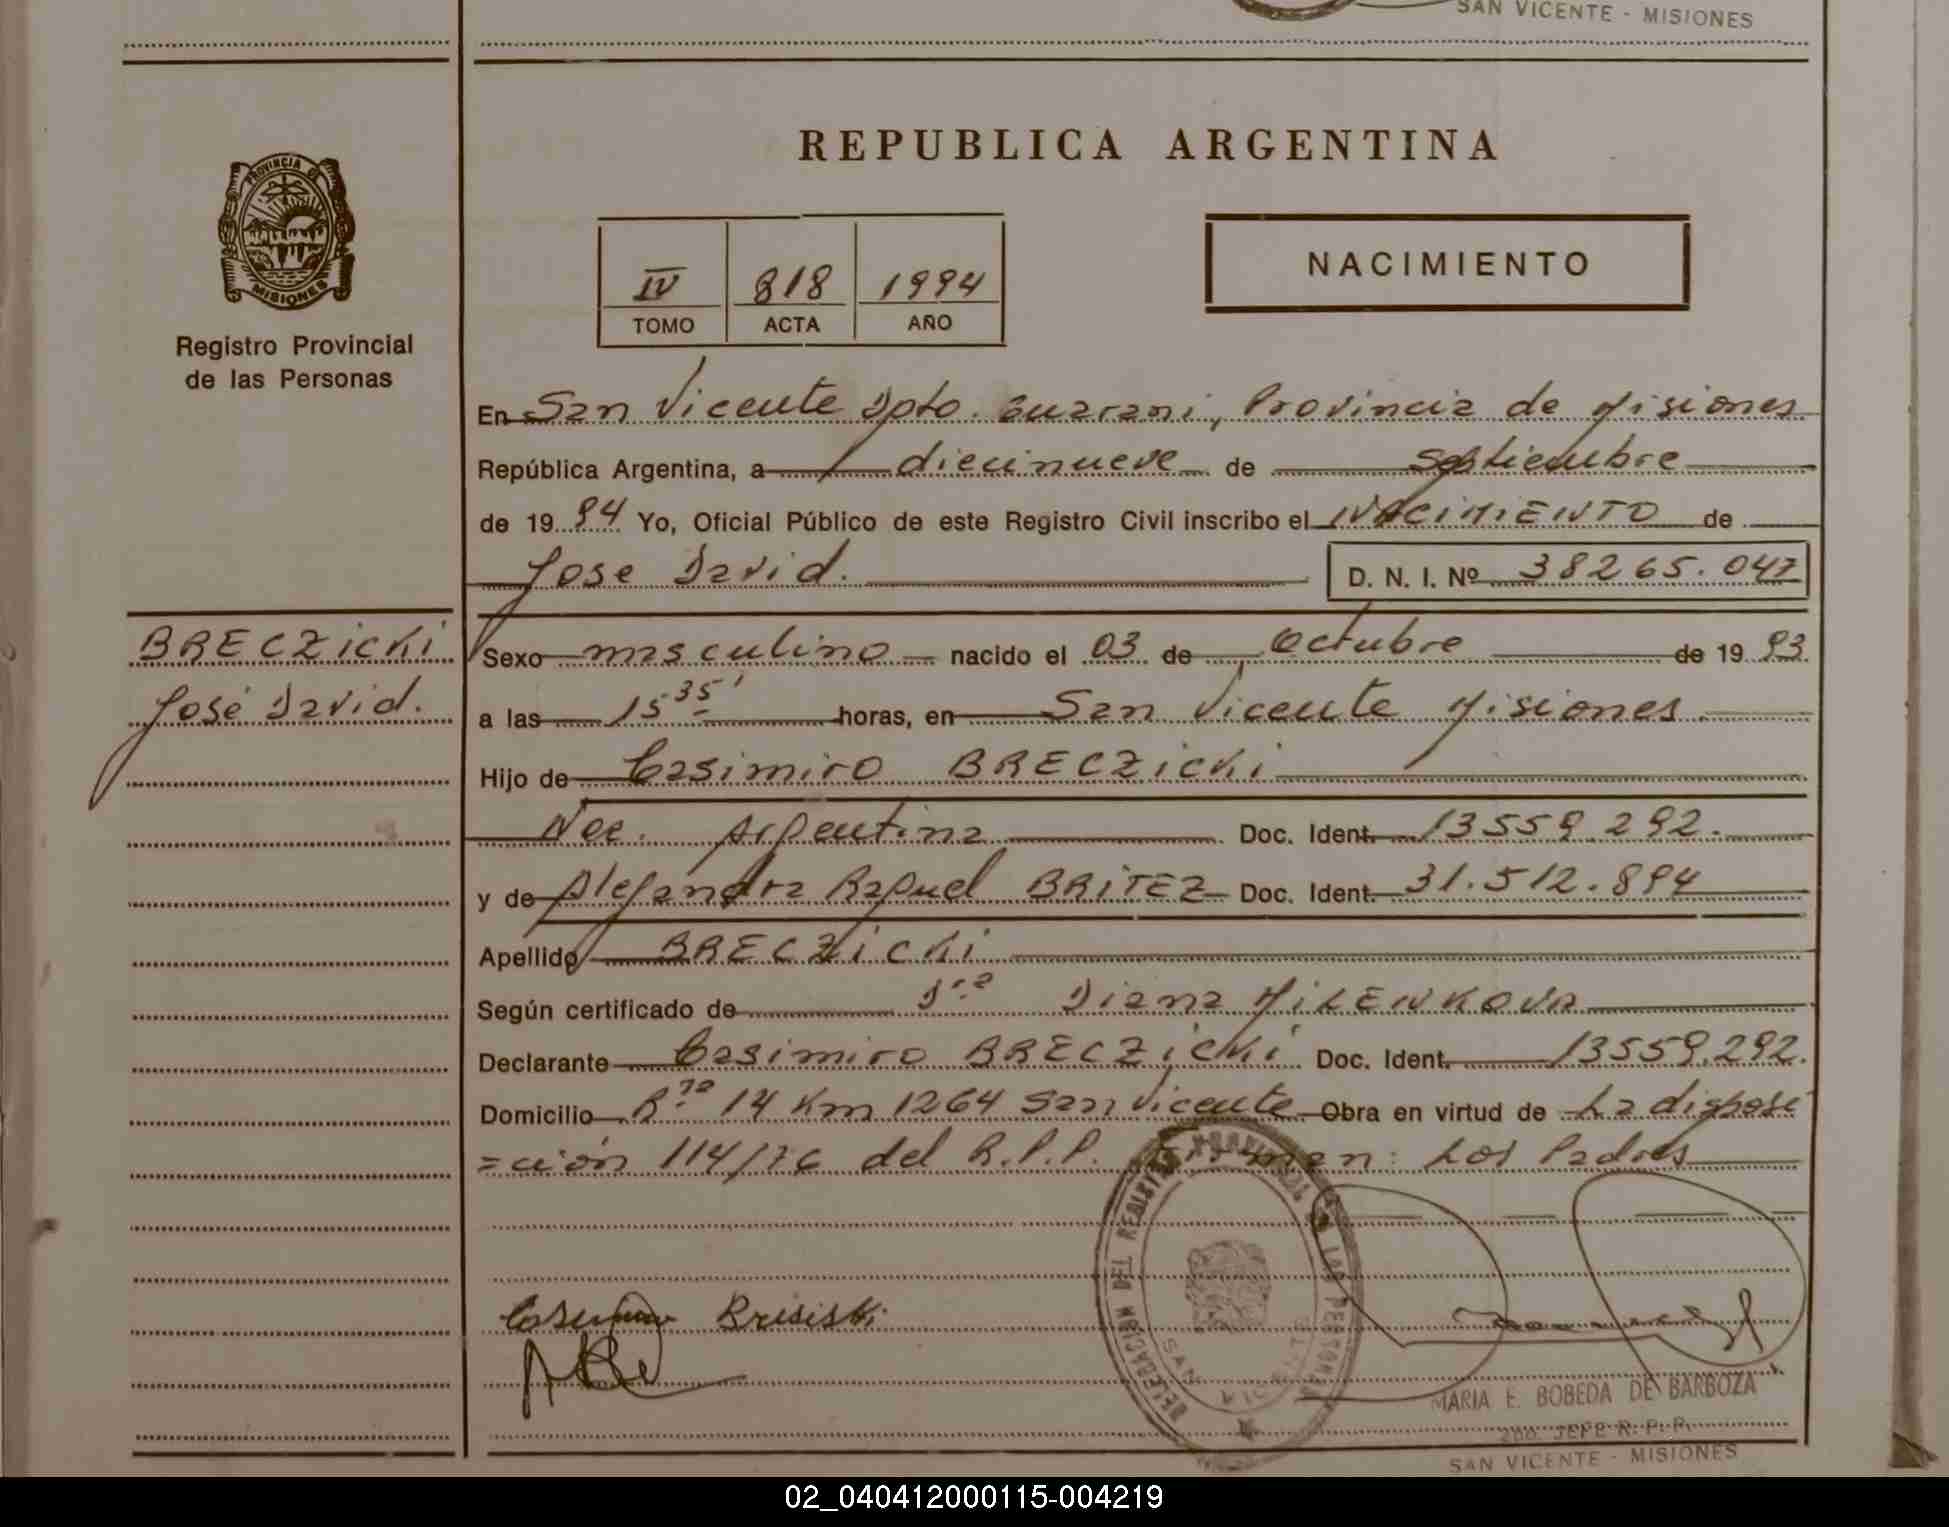 SAN VICENTE - MISIONES
REPUBLICA ARGENTINA
PROVINCIA D
MISIONES
Registro Provincial
de las Personas
IV 818 1994
TOMO ACTA AÑO
NACIMIENTO
En San Vicente Dpto. Guarani, Provincia de Misiones
República Argentina, a diecinueve de Septiembre
de 19 94 Yo, Oficial Público de este Registro Civil inscribo el NACIMIENTO de
Jose David. D. N. I. Nº 38265.047
BRECZicKi
José David.
Sexo masculino nacido el 03 de Octubre de 19 93
a las 15 35' horas, en San Vicente Misiones
Hijo de Casimiro BRECZicKi
Nac. Argentina Doc. Ident. 13559.292.
y de Alejandra Raquel BRITEZ Doc. Ident. 31.512.894
Apellido BRECZicKi
Según certificado de Dra Diana MILENKOVA
Declarante Casimiro BRECZicKi Doc. Ident. 13559.292.
Domicilio Rta 14 Km 1264 San Vicente Obra en virtud de La disposi
=ción 114/76 del R.P.P. Firman: Los Padres
DELEGACION DEL REGISTRO PROVINCIAL DE LAS PERSONAS
SAN VICENTE
MARIA E. BOBEDA DE BARBOZA
2do. JEFE R. P. P.
SAN VICENTE - MISIONES
02_040412000115-004219